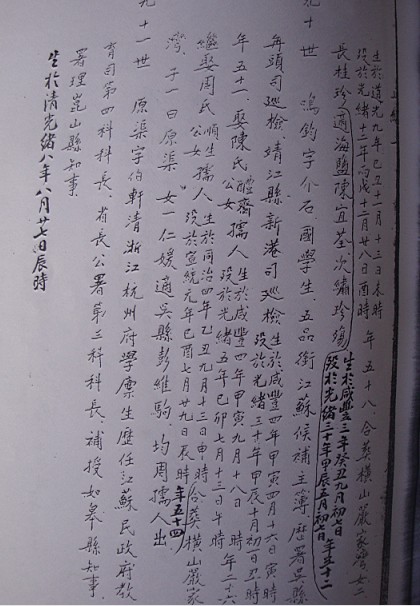 生於道光九年己丑十一月十三日辰時
歿於光緒十二年丙戌十二月廿八日酉時 年五十八、合葬橫山嚴家灣、女二
長桂珍適海鹽陳宜荃次繡珍殤
生於咸豐三年癸丑九月初七日
歿於光緒三十年甲辰五月初七 年五十二
九十世 鴻鈞字介石國學生、五品銜江蘇候補主簿歷署吳縣
甪頭司巡檢、靖江縣新港司巡檢生於咸豐四年甲寅四月十六日寅時
歿於光緒三十年甲辰十月初日丑時
年五十一、娶陳氏醴齋公女孺人生於咸豐四年甲寅九月十八日 時
歿於光緒五年己卯七月十三日午時 年二十六
繼娶周氏順生公女孺人生於同治四年乙丑九月十三日申時
歿於宣統元年己酉七月廿九日辰時合葬橫山嚴家
年五十四
灣、子一曰原渠 女一仁媛適吳縣彭維駒、均周孺人出
九十一世 原渠字伯軒清浙江杭州府學廩生歷任江蘇民政府教
育司第四科科長、省長公署第三科科長、補授如皋縣知事、
署理崑山縣知事
生於清光緒八年八月廿七日辰時